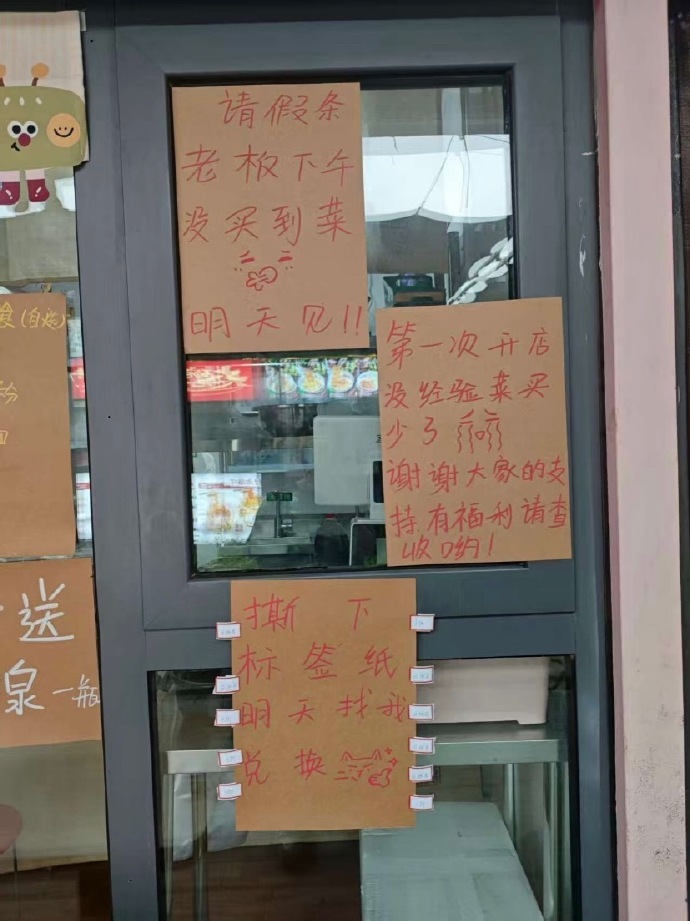 请假条
老板下午
没买到菜
明天见!!
第一次开店
没经验菜买
少了
谢谢大家的支
持,有福利请查
收哟!
撕下
标签纸
明天找我
兑换
送
泉一瓶